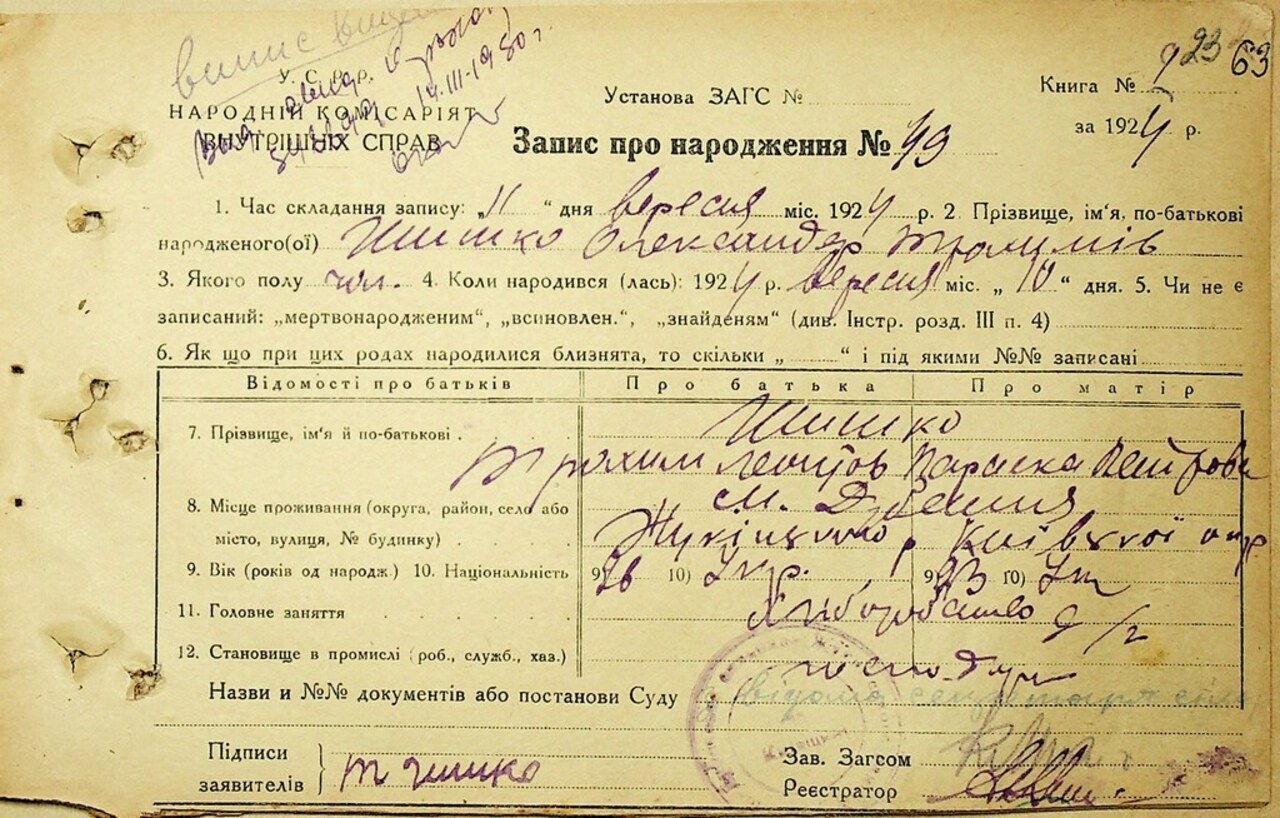 випис
9 23 63
У. С. Р. Р.
14.III-1980 г.
НАРОДНІЙ КОМІСАРІЯТ
ВНУТРІШНІХ СПРАВ
Установа ЗАГС №
Книга №
за 1924 р.
Запис про народження № 49
1. Час складання запису: „11“ дня вересня міс. 1924 р. 2. Прізвище, ім'я, по-батькові
народженого(ої) Шишко Олександер Трохимів
3. Якого полу чол. 4. Коли народився (лась): 1924 р. вересня міс. „10“ дня. 5. Чи не є
записаний: „мертвонародженим“, „всиновлен.“, „знайденям“ (див. Інстр. розд. III п. 4)
6. Як що при цих родах народилися близнята, то скільки „ “ і під якими №№ записані
Відомості про батьків Про батька Про матір
7. Прізвище, ім'я й по-батькові . Шишко
Трохим Параска Петрова
8. Місце проживання (округа, район, село або
місто, вулиця, № будинку) . . . . Київської окр
9. Вік (років од народж.) 10. Національність 9) 26 10) Укр. 9) 23 10) Ук
11. Головне заняття . . . . . Хліборобство 9/2
12. Становище в промислі (роб., служб., хаз.)
Назви и №№ документів або постанови Суду відома секретаря
Підписи
заявителів Т Шишко
Зав. Загсом
Реєстратор